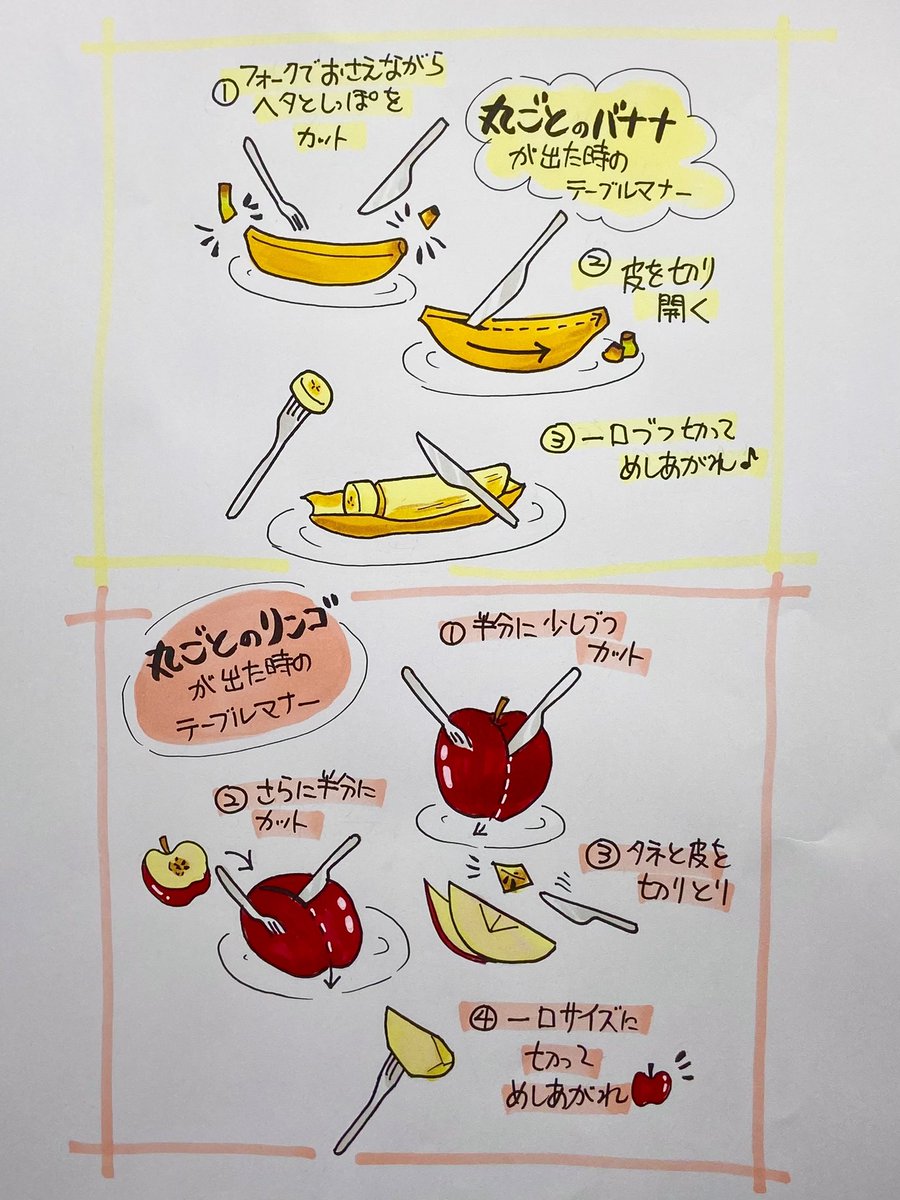 丸ごとのバナナ
が出た時の
テーブルマナー
①フォークでおさえながら
ヘタとしっぽを
カット
②皮を切り
開く
③一口づつ切って
めしあがれ♪
丸ごとのリンゴ
が出た時の
テーブルマナー
①半分に少しづつ
カット
②さらに半分に
カット
③タネと皮を
切りとり
④一口サイズに
切って
めしあがれ